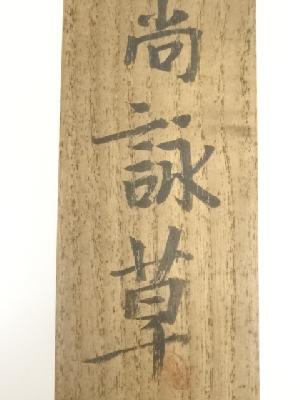 尚詠草